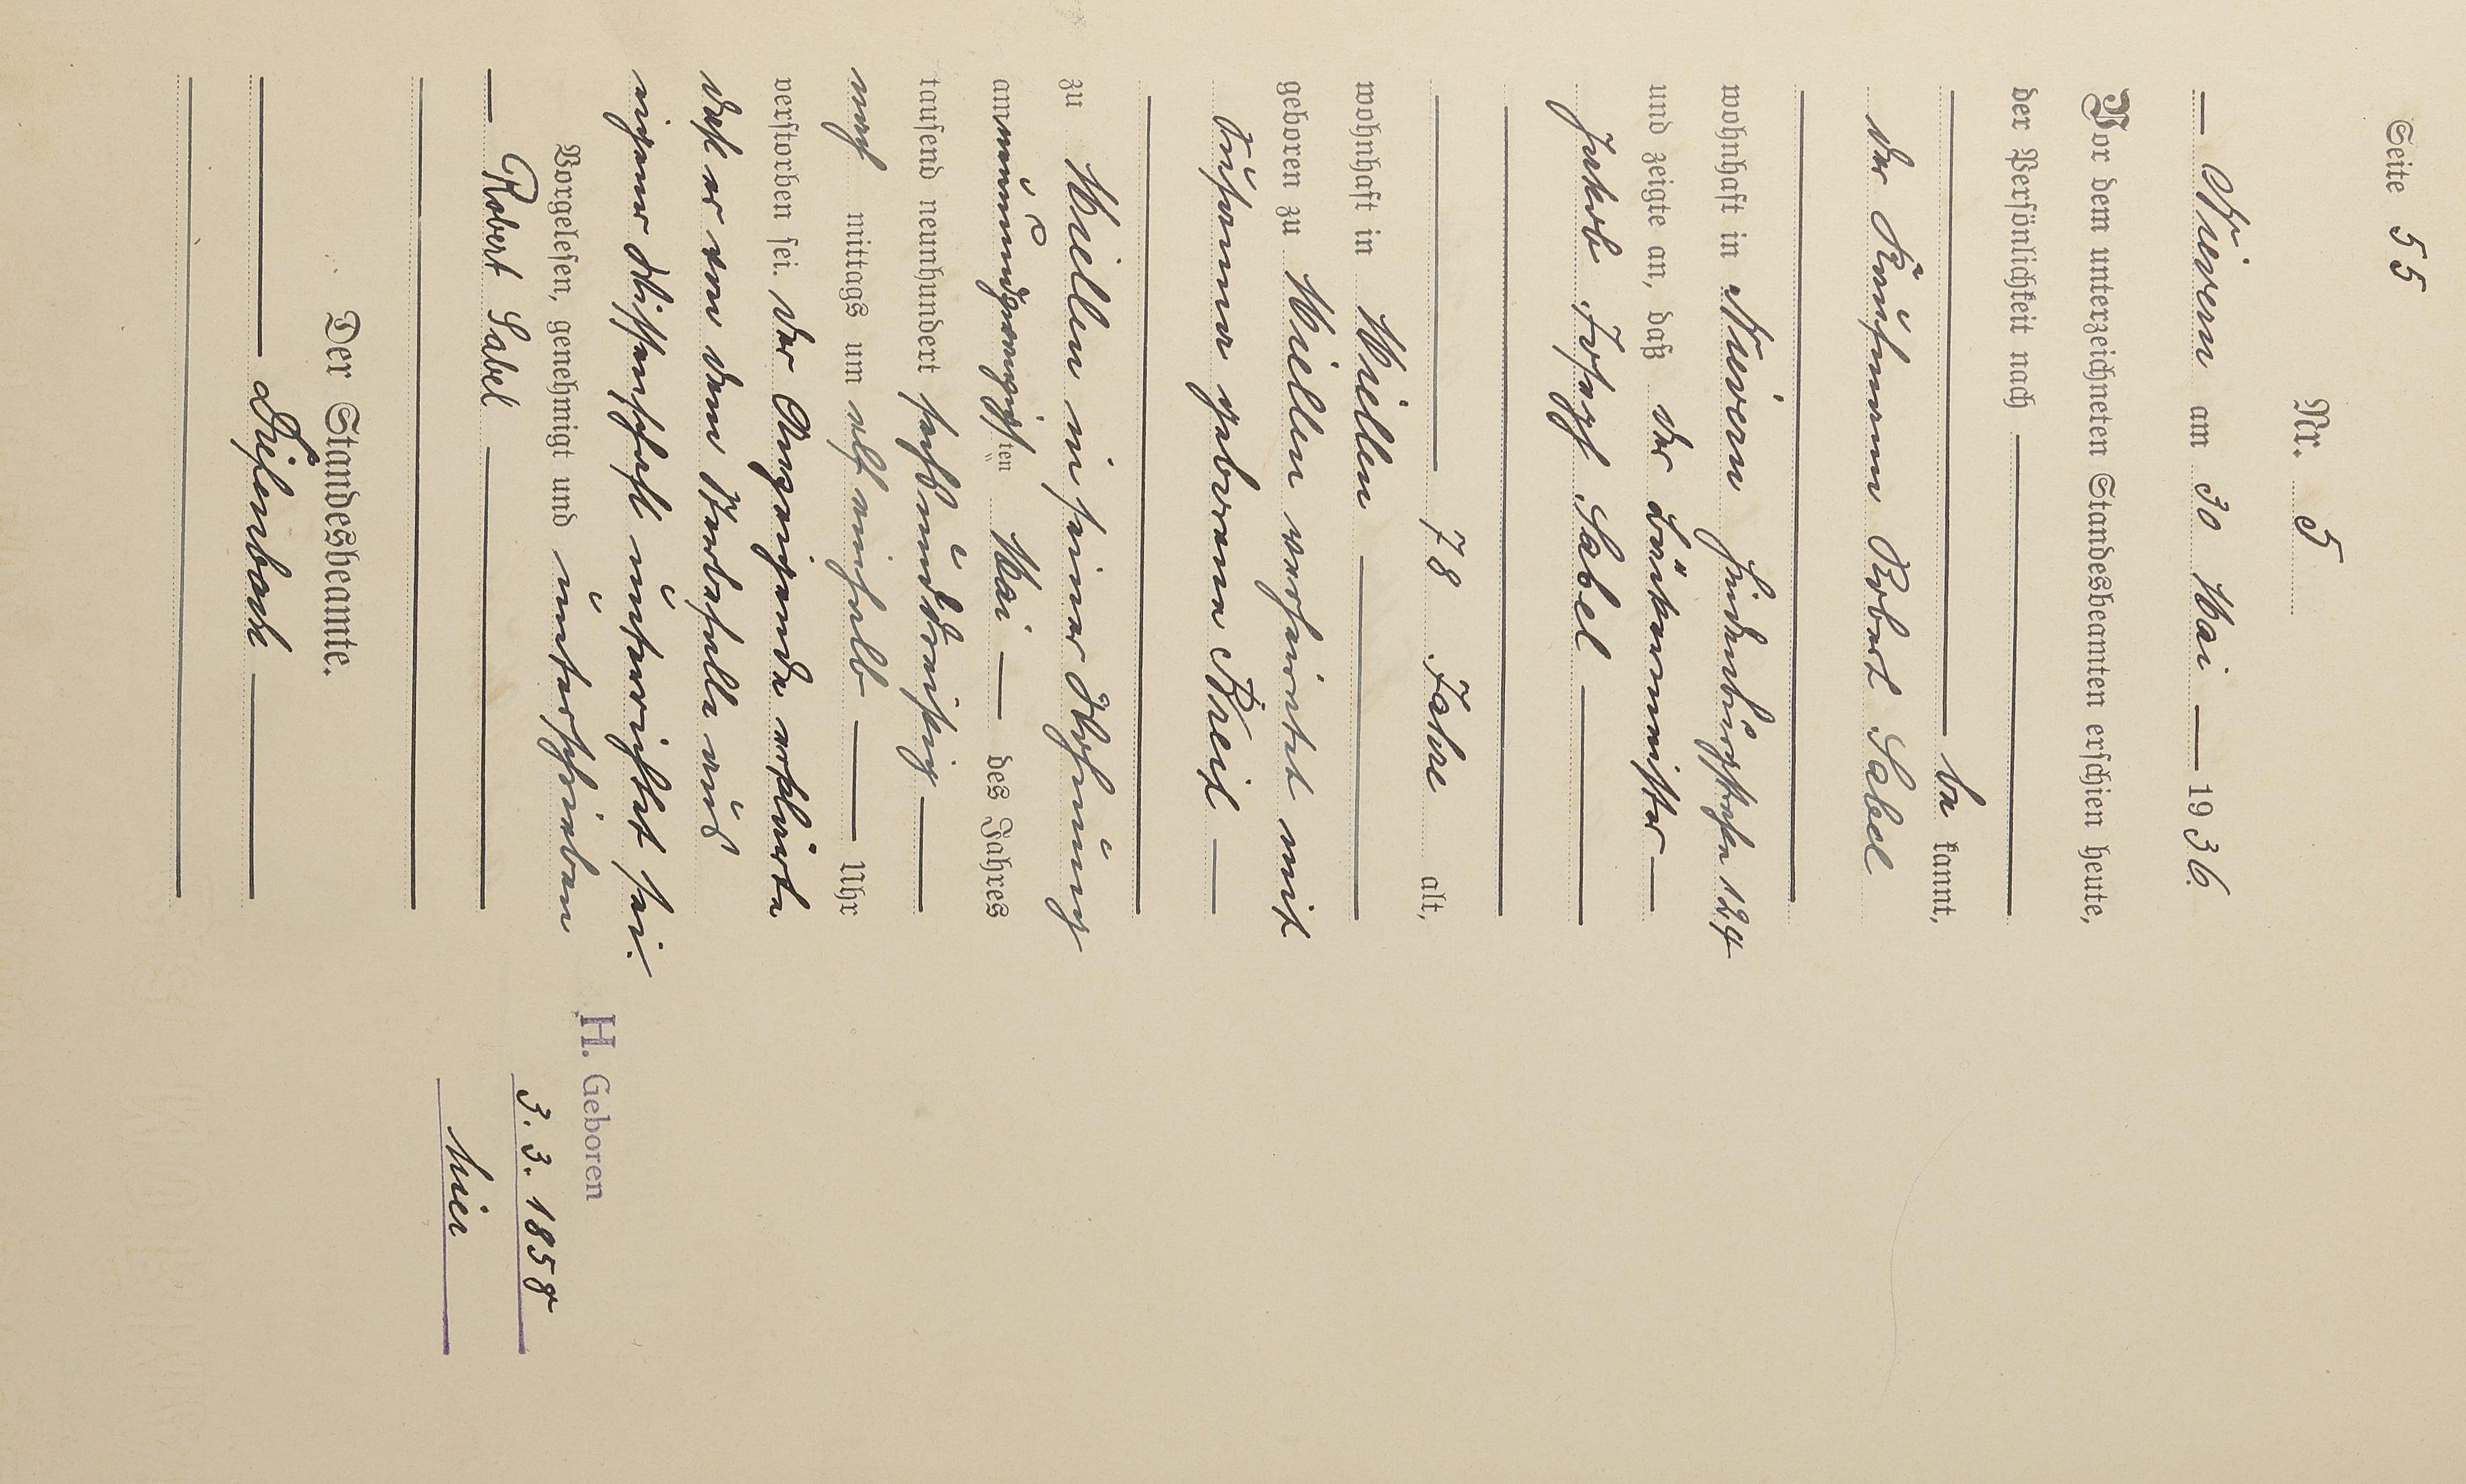 Seite 55
Nr. 5
Nievern am 30 Mai 1936.
Vor dem unterzeichneten Standesbeamten erschien heute,
der Persönlichkeit nach
be kannt,
der Kaufmann Robert Sabel
wohnhaft in Nievern Hindenburgstraße 124
und zeigte an, daß der Bäckermeister
Jakob Josef Sabel
78 Jahre alt,
wohnhaft in Miellen
geboren zu Miellen verheiratet mit
geborene Kreil
zu Miellen in seiner Wohnung
am neunundzwanzigsten Mai des Jahres
tausend neunhundert sechsunddreißig
nach mittags um elf einhalb Uhr
verstorben sei. Der Anzeigende erklärte
daß er von dem Sterbefalle aus
eigener Wissenschaft unterrichtet sei.
Vorgelesen, genehmigt und unterschrieben
Robert Sabel
Der Standesbeamte.
H. Geboren
3.3.1858
hier